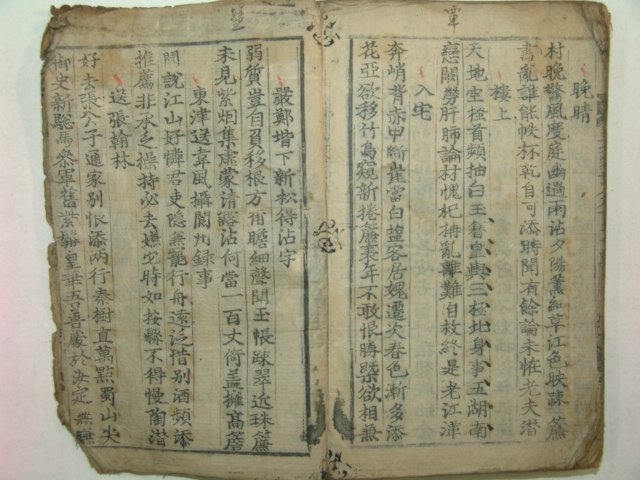 覃
晩晴
村晩驚風度庭幽過雨沾夕陽薰細草江色映踈簾
書亂誰能帙杯乾自可添時聞有餘論未恠老夫潛
樓上
天地空搔首頻抽白玉簪皇輿三極北身事五湖南
戀闕勞肝肺論村愧杞枏亂離難自救終是老江潭
入宅
奔峭背赤甲斷崖當白塩客居媿遷次春色漸多添
花亞欲移竹鳥窺新捲簾衰年不敢恨勝槩欲相兼
嚴鄭堦下新松得沾字
弱質豈自負移根方甭瞻細聲聞玉帳踈翠近珠簾
未見紫烟集虛蒙清露沾何當一百丈欹盖擁高簷
東津送韋風攝閬州録事
聞說江山好憐君吏隱兼寵行舟遠泛惜別酒頻添
推薦非承乏操持必去嫌他時如按縣不得慢陶潛
送張翰林
好去張公子通家别恨添兩行秦樹直萬點蜀山尖
御史新驄馬叅軍舊紫髥皇華吾善處於汝定無嫌